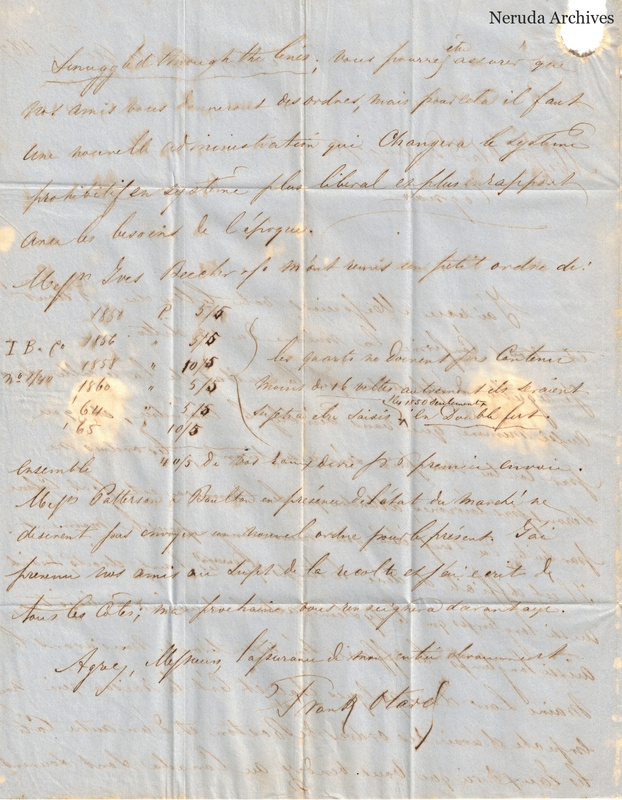 Neruda Archives
Smuggled through the lines; vous pourrez être assurés que
nos amis vous donneront des ordres, mais pour cela il faut
une nouvelle administration qui changera le système
prohibitif en système plus libéral et plus rapport
avec les besoins de l'époque.
Messrs Ives Beecher & Co m'ont remis un petit ordre de:
1851 P 5/5
I B & Co 1856 " 5/5
1858 " 10/5
1860 " 5/5
64 " 5/5
65 10/5
les quarts ne doivent pas contenir
moins de 16 veltes autrement ils seraient
sujets à être saisis
seulement
en Double fut.
Ensemble 40/5 de première envoi.
Messrs Patterson & Boulton en présence de l'état du marché ne
désirent pas envoyer un nouvel ordre pour le présent. J'ai
prévenu nos amis au sujet de la récolte et j'ai écrit de
tous les côtés; ma prochaine vous renseignera davantage.
Agréez, Messieurs, l'assurance de mon entier dévouement.
Frank Otard